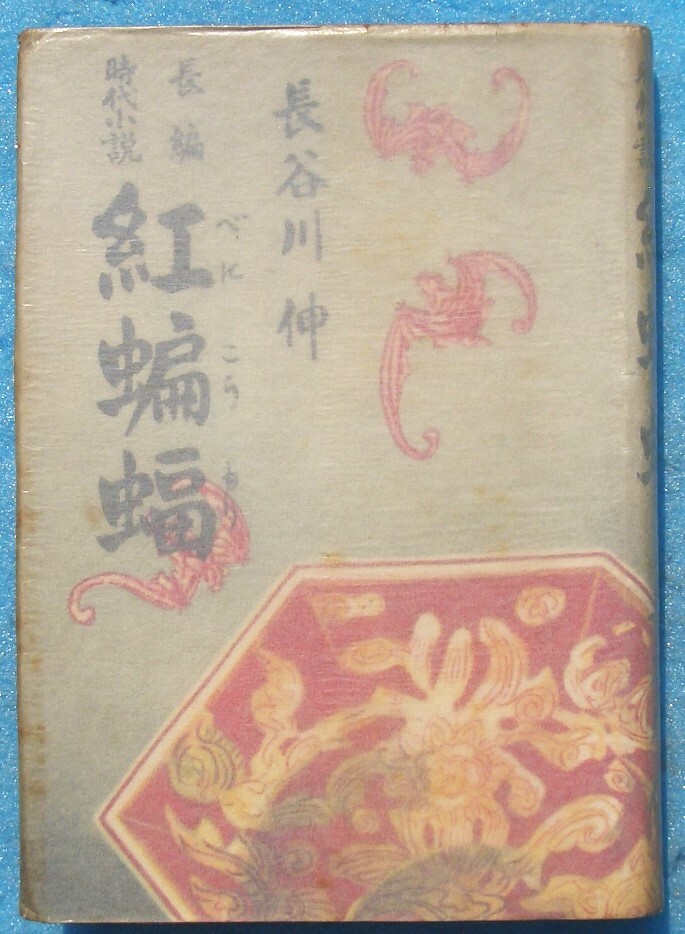 長谷川伸
長編
時代小説
紅蝙蝠
べに こうもり